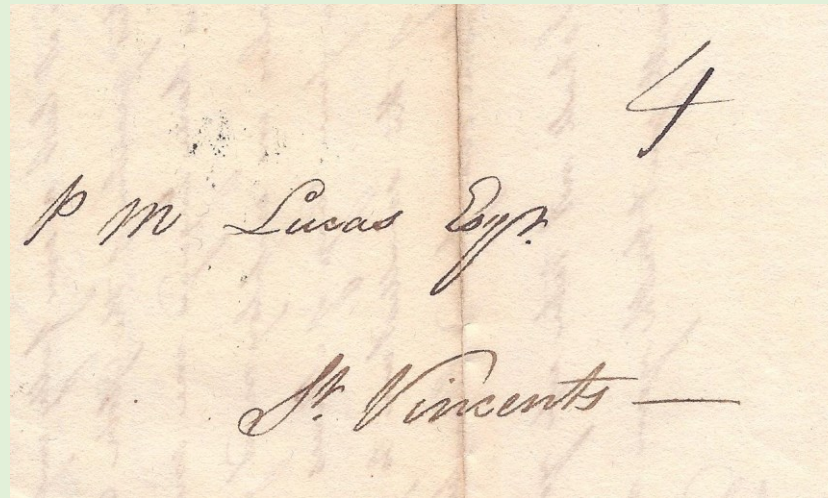 4
P M Lucas Esqr.
St. Vincents —